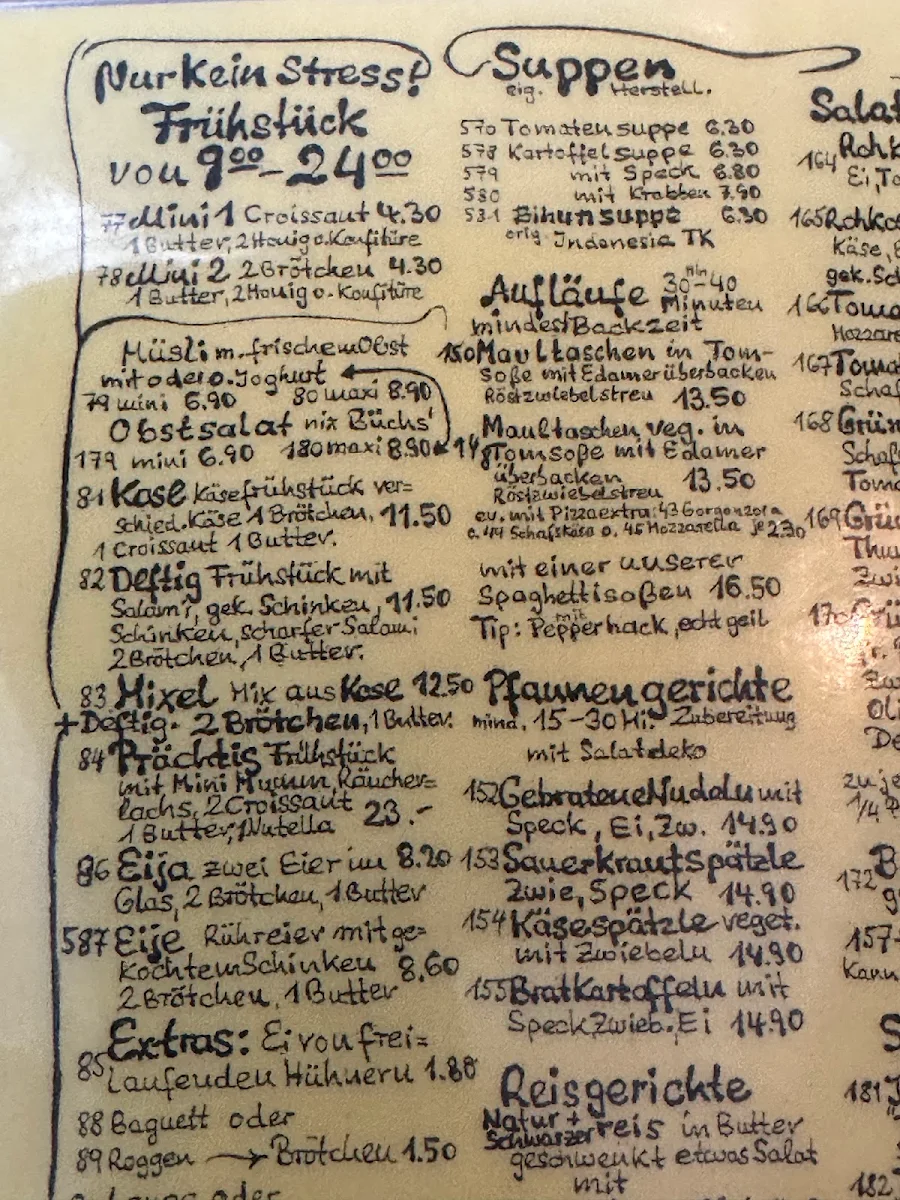 Nur Kein Stress!
Frühstück
von 9⁰⁰-24⁰⁰
77 Mini 1 Croissant 4.30
1 Butter, 2 Honig o. Konfitüre
78 Mini 2 2 Brötchen 4.30
1 Butter, 2 Honig o. Konfitüre
Müsli m. frischem Obst
mit oder o. Joghurt
79 mini 6.90 80 maxi 8.90
Obstsalat nix Büchs'
179 mini 6.90 180 maxi 8.90
81 Käse Käsefrühstück ver=
schied. Käse 1 Brötchen, 11.50
1 Croissant 1 Butter.
82 Deftig Frühstück mit
Salami, gek. Schinken, 11.50
Schinken, scharfer Salami
2 Brötchen, 1 Butter.
83 Mixel Mix aus Käse 12.50
+ Deftig. 2 Brötchen, 1 Butter.
84 Prächtig Frühstück
mit Mini Mumm, Räucher=
lachs, 2 Croissant
1 Butter, Nutella 23.-
86 Eija zwei Eier im 8.20
Glas, 2 Brötchen, 1 Butter
587 Eije Rühreier mit ge=
kochtem Schinken 8.60
2 Brötchen, 1 Butter
Extras: Ei von frei=
85 laufenden Hühnern 1.80
88 Baguett oder
89 Roggen → Brötchen 1.50
oder
Suppen
eig. Herstell.
570 Tomatensuppe 6.30
578 Kartoffelsuppe 6.30
579 mit Speck 6.80
580 mit Krabben 7.90
581 Bihunsuppe 6.30
orig. Indonesia TK
Aufläufe 30-40
Minuten
mindest Backzeit
150 Maultaschen in Tom-
soße mit Edamer überbacken
Röstzwiebelstreu 13.50
Maultaschen veg. in
Tomsoße mit Edamer
überbacken 13.50
Röstzwiebelstreu
ev. mit Pizzaextra: 43 Gorgonzola
o. 44 Schafskäse o. 45 Mozzarella je 2.30
mit einer unserer
Spaghettisoßen 16.50
Tip: mit Pepperhack, echt geil
Pfannengerichte
mind. 15-30 Mi. Zubereitung
mit Salatdeko
152 Gebratene Nudeln mit
Speck, Ei, Zw. 14.90
153 Sauerkrautspätzle
Zwie, Speck 14.90
154 Käsespätzle veget.
mit Zwiebeln 14.90
155 Bratkartoffeln mit
Speck Zwieb. Ei 14.90
Reisgerichte
Natur +
Schwarzer reis in Butter
geschwenkt etwas Salat
mit
Salat
164 Rohk
Ei, To
165 Rohko
Käse,
gek. Sch
166 Toma
Mozzare
167 Toma
Schaf
168 Grün
Schaf
Toma
169 Grü
Thu
Zwi
170 Grü
Zw
Oli
De
zu je
1/4
172 B
157
Kann
S
181
182